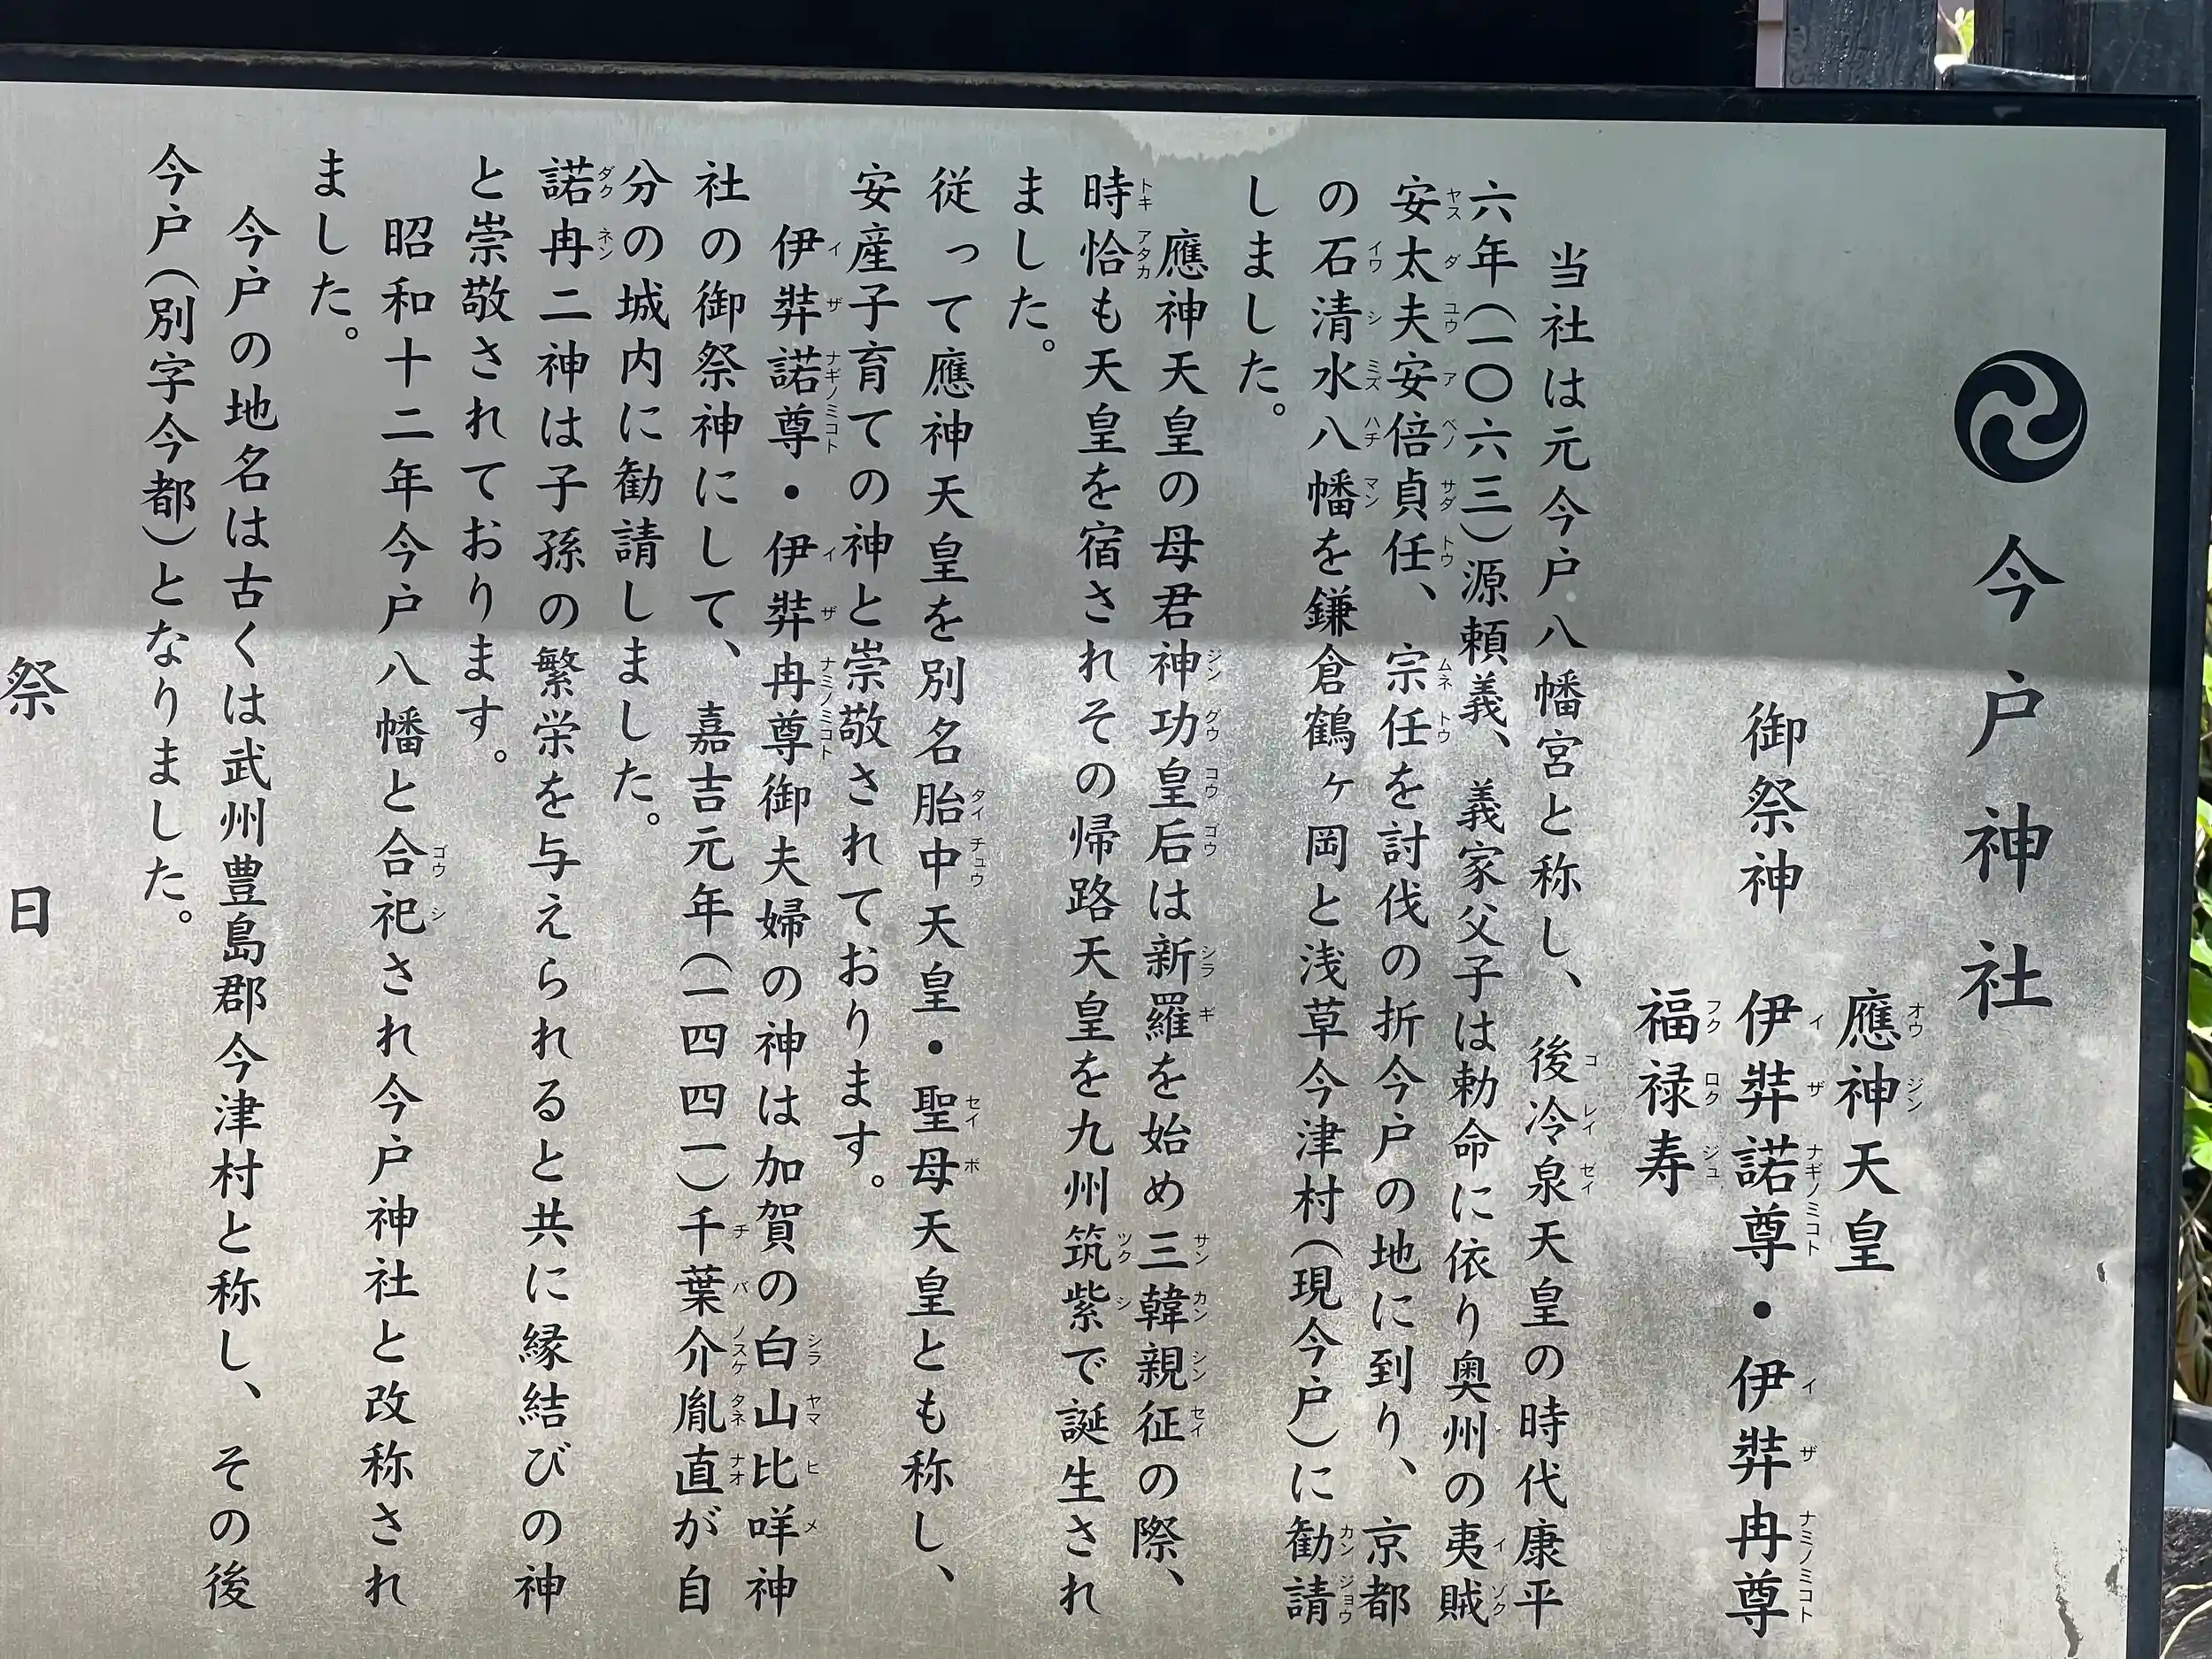 今戸神社
應神天皇
御祭神 伊弉諾尊・伊弉冉尊
福禄寿
当社は元今戸八幡宮と称し、後冷泉天皇の時代康平
六年(一〇六三)源頼義、義家父子は勅命に依り奥州の夷賊
安太夫安倍貞任、宗任を討伐の折今戸の地に到り、京都
の石清水八幡を鎌倉鶴ヶ岡と浅草今津村(現今戸)に勧請
しました。
應神天皇の母君神功皇后は新羅を始め三韓親征の際、
時恰も天皇を宿されその帰路天皇を九州筑紫で誕生され
ました。
従って應神天皇を別名胎中天皇・聖母天皇とも称し、
安産子育ての神と崇敬されております。
伊弉諾尊・伊弉冉尊御夫婦の神は加賀の白山比咩神
社の御祭神にして、嘉吉元年(一四四一)千葉介胤直が自
分の城内に勧請しました。
諾冉二神は子孫の繁栄を与えられると共に縁結びの神
と崇敬されております。
昭和十二年今戸八幡と合祀され今戸神社と改称され
ました。
今戸の地名は古くは武州豊島郡今津村と称し、その後
今戸(別字今都)となりました。
祭日